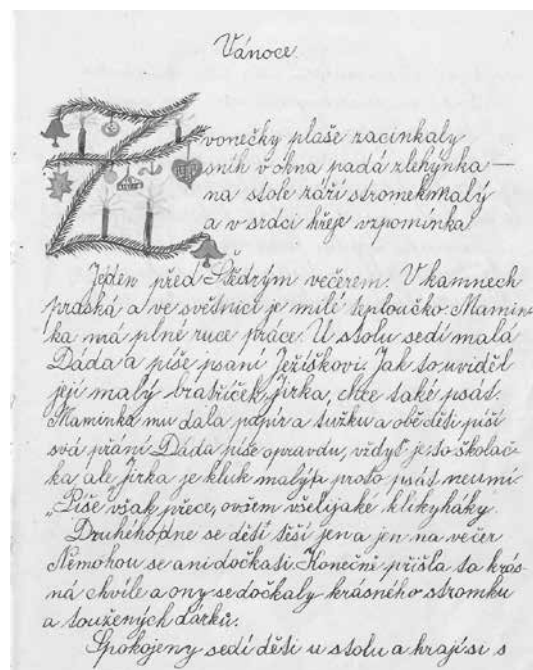 Vánoce.
Zvonečky plaše zacinkaly
sníh v okna padá zlehýnka —
na stole září stromek malý
a v srdci hřeje vzpomínka
Jeden před Štědrým večerem. V kamnech
praská a ve světnici je milé teploučko. Mamin-
ka má plné ruce práce. U stolu sedí malá
Dáda a píše psaní Ježíškovi. Jak to uviděl
její malý bratříček, Jirka, chce také psát.
Maminka mu dala papír a tužku a obě děti píší
svá přání. Dáda píše opravdu, vždyť je to školač-
ka ale Jirka je kluk malý a proto psát neumí.
Píše však přece, ovšem všelijaké klikyháky.
Druhého dne se děti těší jen a jen na večer
Nemohou se ani dočkati. Konečně přišla ta krás-
ná chvíle a ony se dočkaly krásného stromku
a toužených dárků.
Spokojeny sedí děti u stolu a hrají si s